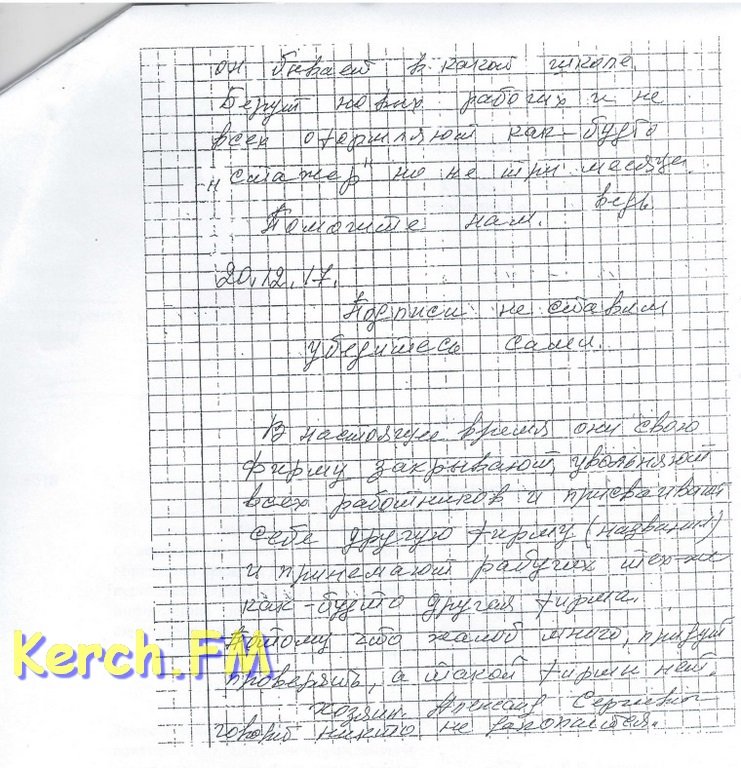 он бывает в какой школе.
Берут новых рабочих и не
всех оформляют как-будто
"стажер" но не три месяца
ведь
Помогите нам.
20.12.17.
Подписи не ставим
убедитесь сами.
В настоящие время они свою
фирму закрывают, увольняют
всех работников и присваивают
себе другую фирму (название)
и принемают рабочих тех-же
как-будто другая фирма.
Потому что жалоб много, придут
проверять, а такой фирмы нет.
Хозяин. Сергеевич
говорит никто не
Kerch.FM